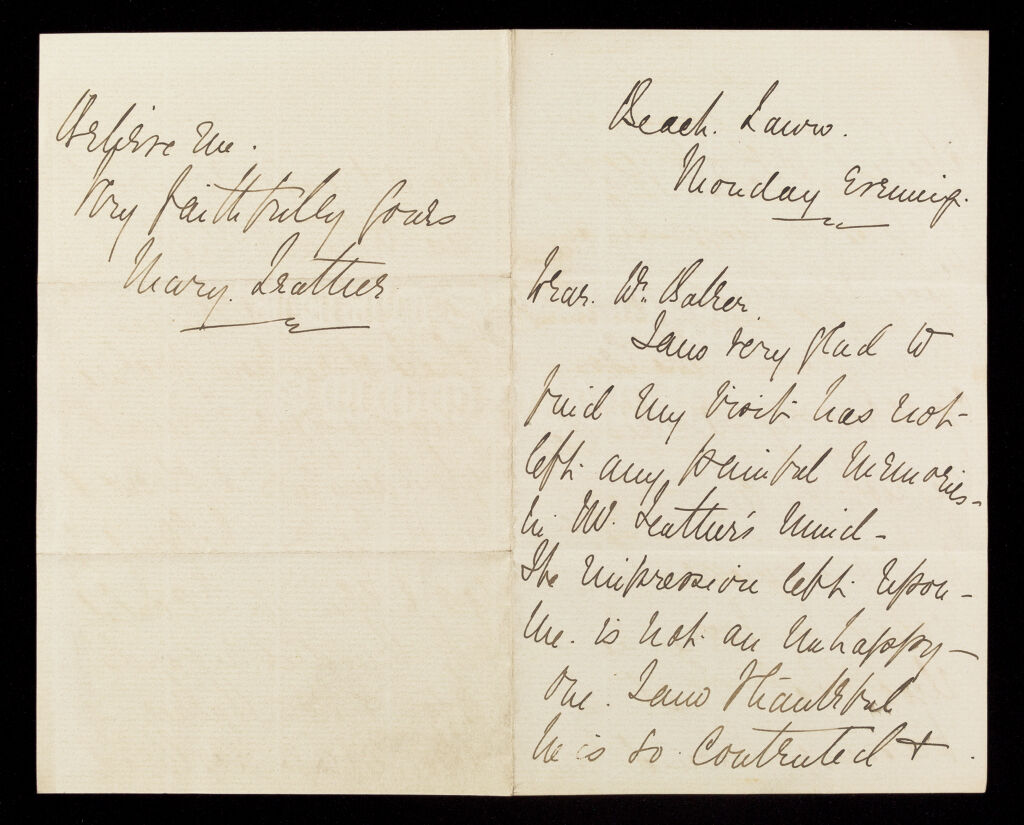 Beach. Lawn.
Monday Evening.
Dear. Dr. Baker.
I am very glad to
find my visit has not
left any painful memories
in Mr. Leather's mind -
The impression left upon -
me. is not an unhappy -
one. I am thankful
he is so contented +
Believe me.
Very faithfully yours
Mary. Leather